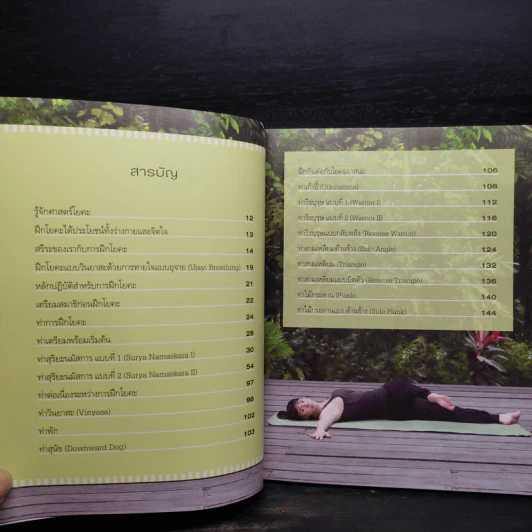 สารบัญ
รู้จักศาสตร์โยคะ 12
ฝึกโยคะได้ประโยชน์ทั้งร่างกายและจิตใจ 13
สรีระของเรากับการฝึกโยคะ 14
ฝึกโยคะแบบวินยาสะด้วยการหายใจแบบอุจาย (Ujayi Breathing) 19
หลักปฏิบัติสำหรับการฝึกโยคะ 21
เตรียมสมาธิก่อนฝึกโยคะ 22
ท่าการฝึกโยคะ 24
ท่าเตรียมพร้อมเริ่มต้น 28
ท่าสุริยะนมัสการ แบบที่ 1 (Surya Namaskara I) 30
ท่าสุริยะนมัสการ แบบที่ 2 (Surya Namaskara II) 54
ท่าต่อเนื่องระหว่างการฝึกโยคะ 97
ท่าวินยาสะ (Vinyasa) 98
ท่าพัก 102
ท่าสุนัข (Downward Dog) 103
ฝึกกันต่อกับโยคะอาสนะ 106
ท่าเก้าอี้ (Utkatasana) 108
ท่าวีรบุรุษ แบบที่ 1 (Warrior I) 112
ท่าวีรบุรุษ แบบที่ 2 (Warrior II) 116
ท่าวีรบุรุษแบบกลับหลัง (Reverse Warrior) 120
ท่าสามเหลี่ยมด้านข้าง (Side Angle) 124
ท่าสามเหลี่ยม (Triangle) 132
ท่าสามเหลี่ยมแบบบิดตัว (Reverse Triangle) 136
ท่าไม้กระดาน (Plank) 140
ท่าไม้กระดานแบบด้านข้าง (Side Plank) 144